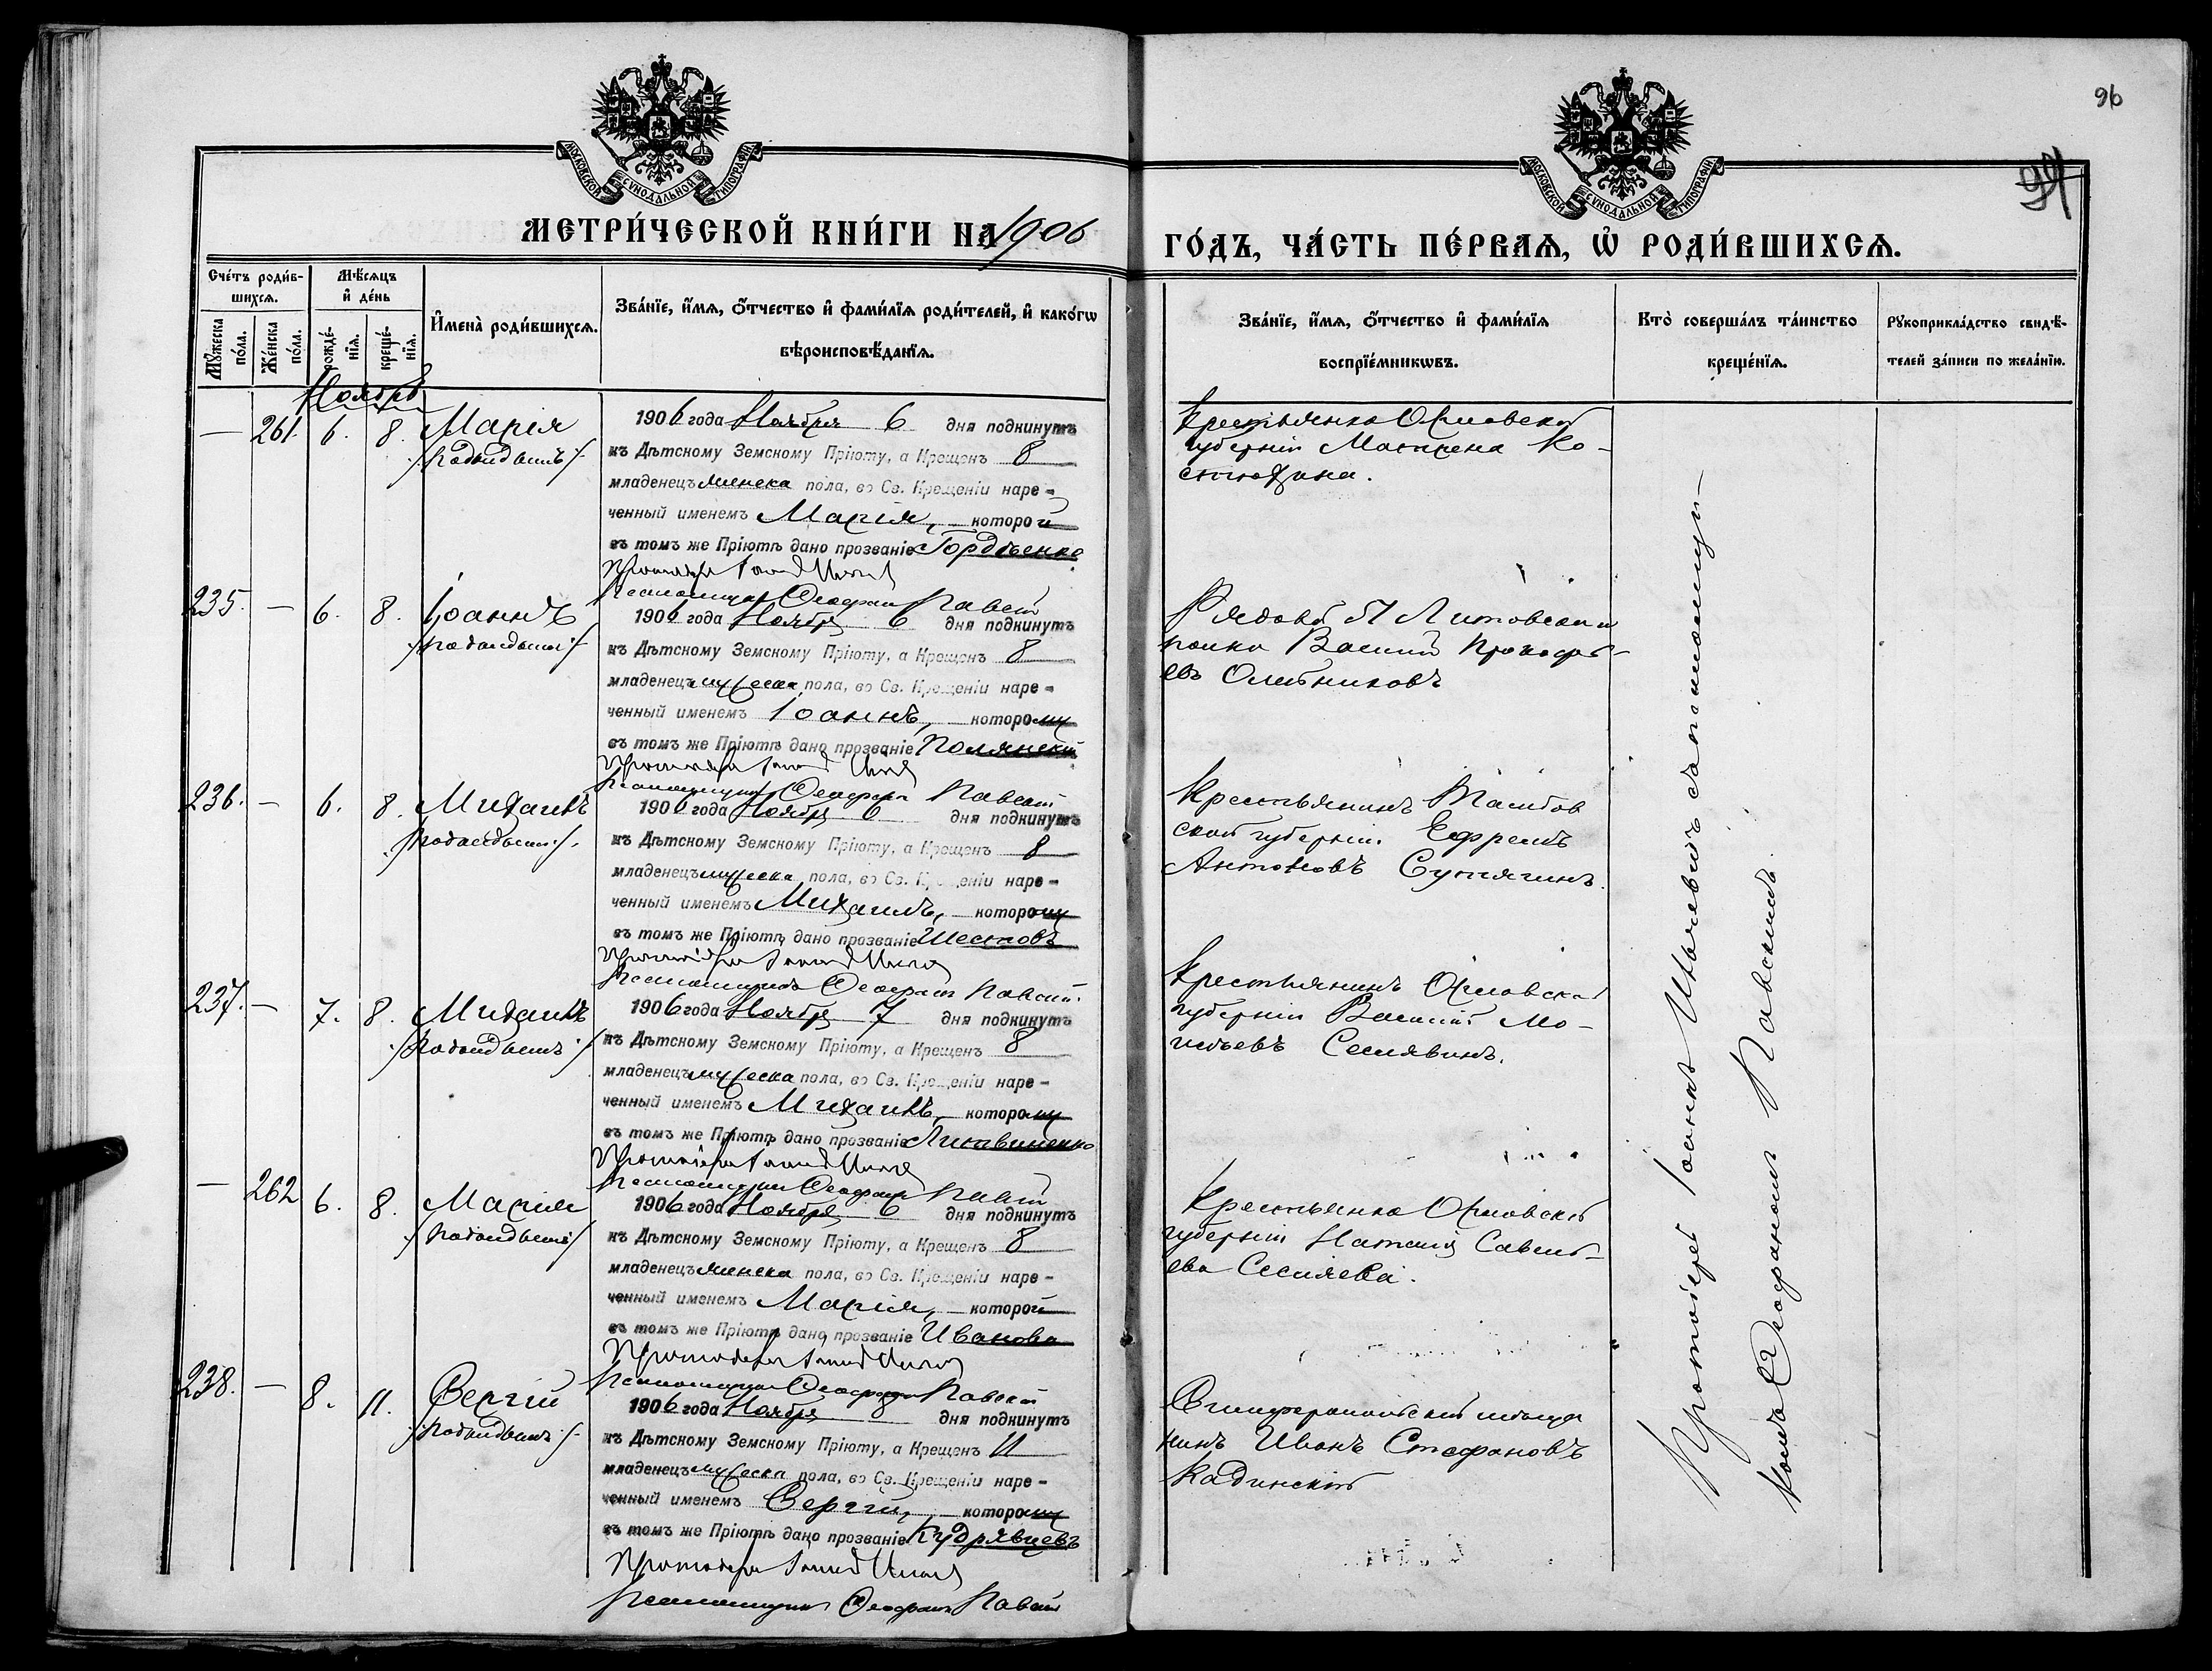 96
94
МОСКОВСКОЙ СѴНОДАЛЬНОЙ ТИПОГРАФІИ
МОСКОВСКОЙ СѴНОДАЛЬНОЙ ТИПОГРАФІИ
МЕТРИ́ЧЕСКОЙ КНИ́ГИ НА 1906
ГО́ДЪ, ЧА́СТЬ ПЕ́РВАѦ, Ѡ РОДИ́ВШИХСѦ.
Сче́тъ роди́в-
шихсѧ.
Мꙋ́жеска по́ла.
Же́нска по́ла.
Мѣ́сѧцъ
и҆ де́нь
рожде́-
нїѧ.
креще́-
нїѧ.
И҆мена̀ роди́вшихсѧ.
Зва́нїе, и҆́мѧ, ѻ҆́тчество и҆ фами́лїѧ роди́телей, и҆ како́гѡ
вѣроисповѣ́данїѧ.
Зва́нїе, и҆́мѧ, ѻ҆́тчество и҆ фами́лїѧ
воспрїе́мникѡвъ.
Кто̀ соверша́лъ та́инство
креще́нїѧ.
Рꙋкоприкла́дство свидѣ́-
телей за́писи по жела́нїю.
Ноябрь
— 261. 6. 8. Марія
/:подкидышъ:/
1906 года Ноября 6 дня подкинутъ
къ Дѣтскому Земскому Пріюту, а Крещенъ 8
младенецъ женска пола, во Св. Крещеніи наре-
ченный именемъ Марія, которой
въ томъ же Пріютѣ дано прозваніе Гордѣенко
Псаломщикъ Ѳеофанъ Павскій
Крестьянка Орловской
губерніи Матрена Ко-
стюхина.
235. — 6. 8. Іоаннъ
/:подкидышъ:/
1906 года Ноября 6 дня подкинутъ
къ Дѣтскому Земскому Пріюту, а Крещенъ 8
младенецъ мужеска пола, во Св. Крещеніи наре-
ченный именемъ Іоаннъ, которому
въ томъ же Пріютѣ дано прозваніе Полянскій
Псаломщикъ Ѳеофанъ Павскій
Рядовой 51 Литовскаго
полка Василій Прокофь-
евъ
236. — 6. 8. Михаилъ
/:подкидышъ:/
1906 года Ноября 6 дня подкинутъ
къ Дѣтскому Земскому Пріюту, а Крещенъ 8
младенецъ мужеска пола, во Св. Крещеніи наре-
ченный именемъ Михаилъ, которому
въ томъ же Пріютѣ дано прозваніе Шестовъ
Псаломщикъ Ѳеофанъ Павскій
Крестьянинъ Тамбов
ской губерніи Ефремъ
Антоновъ Сутягинъ.
237. — 7. 8. Михаилъ
/:подкидышъ:/
1906 года Ноября 7 дня подкинутъ
къ Дѣтскому Земскому Пріюту, а Крещенъ 8
младенецъ мужеска пола, во Св. Крещеніи наре-
ченный именемъ Михаилъ, которому
въ томъ же Пріютѣ дано прозваніе Литвиненко
Псаломщикъ Ѳеофанъ Павскій
Крестьянинъ Орловской
губерніи Василій
Селявинъ.
— 262 6. 8. Марія
/:подкидышъ:/
1906 года Ноября 6 дня подкинутъ
къ Дѣтскому Земскому Пріюту, а Крещенъ 8
младенецъ женска пола, во Св. Крещеніи наре-
ченный именемъ Марія, которой
въ томъ же Пріютѣ дано прозваніе Иванова
Псаломщикъ Ѳеофанъ Павскій
Крестьянка Орловской
губерніи Наталія Савель-
ева
238. — 8. 11. Сергій
/:подкидышъ:/
1906 года Ноября 8 дня подкинутъ
къ Дѣтскому Земскому Пріюту, а Крещенъ 11
младенецъ мужеска пола, во Св. Крещеніи наре-
ченный именемъ Сергій, которому
въ томъ же Пріютѣ дано прозваніе Кудрявцевъ
Псаломщикъ Ѳеофанъ Павскій
Симферопольскій мѣща
нинъ Иванъ Стефановъ
Кадинскій
Протоіерей Іоаннъ съ псаломщи-
комъ Ѳеофаномъ Павскимъ.